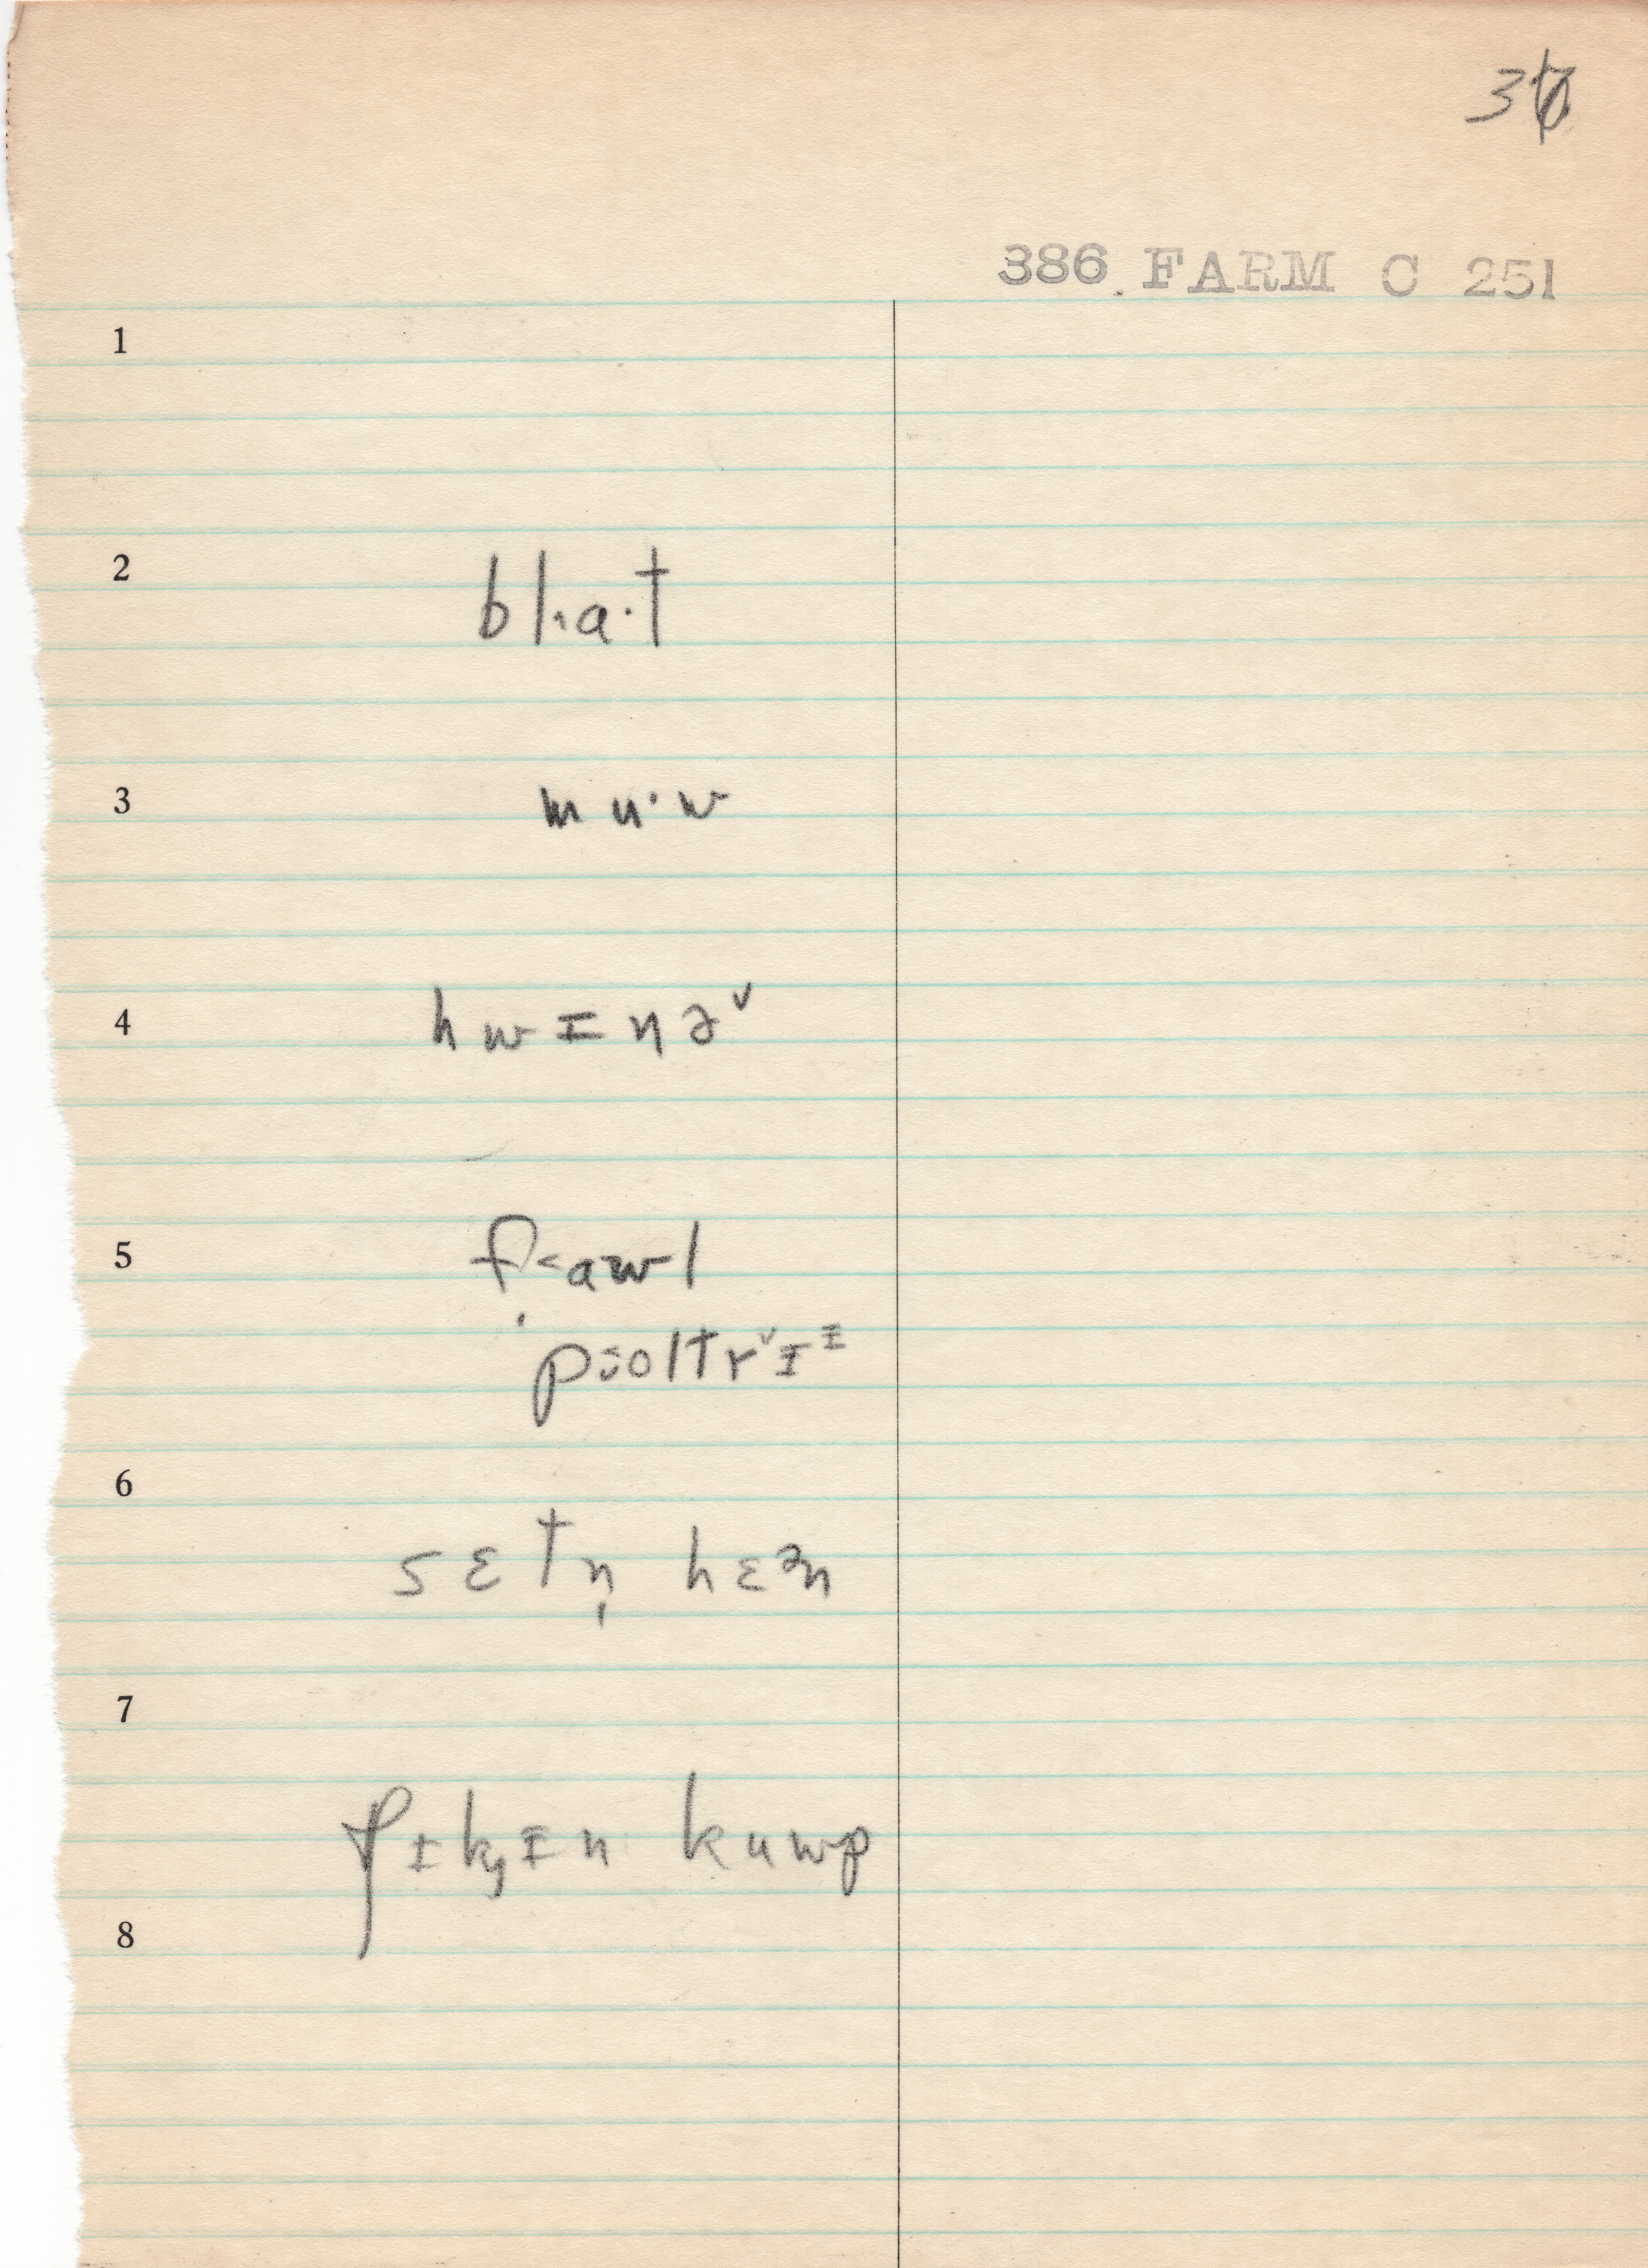 386 FARM C 251
1
2
bl˔a·t
3
mu·w
4
hwɪnə˅
5
f˂awl
poltr˅ɪᶦ
6
sɛtn̩ hɛᵊn
7
ʧɪk̡ɪn kuwp
8